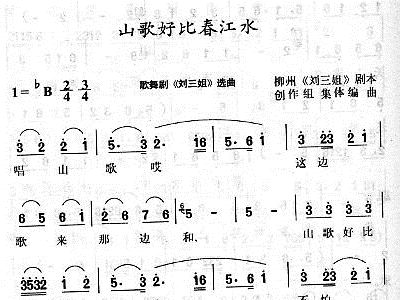 山歌好比春江水
1=♭B 2/4 3/4
歌舞剧《刘三姐》选曲
柳州《刘三姐》剧本
创作组集体编曲
3 2 2 1 | 5· 3 | 2· 16 | 5· 6 1 | 3 23 2 1 |
唱山歌哎 这边
6 5 6 1 | 2 6 7 6 | 5 - | 5 - | 3 3 3 3 |
歌来那边和, 山歌好比
3532 1 | 5· 3 | 2· 16 | 5· 6 1 | 3 23 2 1 |